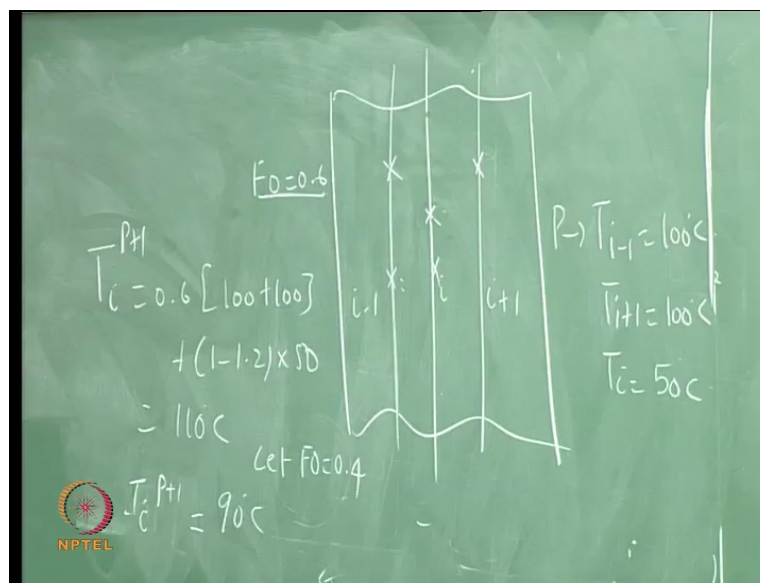 Fo=0.6
T_i^{P+1} = 0.6 [100+100]
+ (1-1.2) x 50
= 110°C
Let Fo=0.4
T_i^{P+1} = 90°C
i-1
i
i+1
P→ T_{i-1} = 100°C
T_{i+1} = 100°C
T_i = 50°C
NPTEL